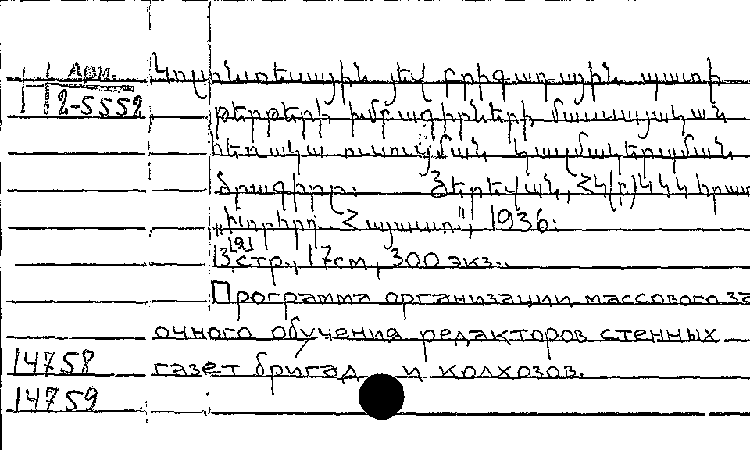 Арм.
Կոլտնտեսային յեվ բրիգադային պատի
2-5552
թերթերի խմբագիրների մասսայական
հեռակա ուսուցման կազմակերպման
ծրագիրը: Յերեվան, ՀԿ(բ)Կ ԿԿ հրատ
„Խորհրդ. Հայաստ", 1936:
13 [2] стр., 17см, 300 экз.
Программа организации массового за
очного обучения редакторов стенных
14758 газет бригад и колхозов.
14759